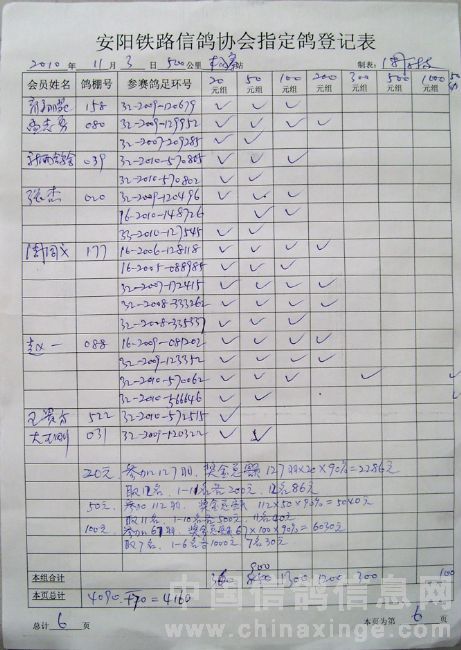 安阳铁路信鸽协会指定鸽登记表
2010 年 11 月 3 日 500 公里 站 制表:
会员姓名 鸽棚号 参赛鸽足环号 20元组 50元组 100元组 200元组 300元组 500元组 1000元组
158 32-2009-120679 ✓ ✓ ✓
080 32-2009-129952 ✓ ✓ ✓ ✓
32-2007-209285 ✓ ✓
039 32-2010-570805 ✓ ✓ ✓
32-2010-570802 ✓
张杰 020 32-2009-120496 ✓ ✓ ✓
16-2010-148726 ✓ ✓
33-2010-127545 ✓ ✓
177 16-2006-128118 ✓ ✓ ✓ ✓
16-2005-088985 ✓ ✓ ✓
32-2007-172415 ✓ ✓ ✓ ✓
32-2008-333262 ✓ ✓ ✓ ✓
32-2008-335337 ✓ ✓ ✓
赵一 088 16-2009-081202 ✓ ✓ ✓ ✓
32-2009-123352 ✓ ✓ ✓ ✓
32-2010-570062 ✓ ✓ ✓ ✓ ✓
32-2010-566646 ✓ ✓ ✓
522 32-2010-572515 ✓
031 32-2009-120322 ✓ ✓
20元 参加127羽 奖金总额 127羽×20×90%=2286元
取12名 1-11名各200元 12名86元
50元 参加112羽 奖金总额 112×50×90%=5040元
取11名 1-10名各500元 11名40元
100元 参加67羽 奖金总额 67×100×90%=6030元
取7名 1-6名各1000元 7名30元
本组合计 1300 1200 300 100
本页总计 4090 +70=4160
总计 6 页 本页为第 6 页
中国信鸽信息网
www.chinaxinge.com